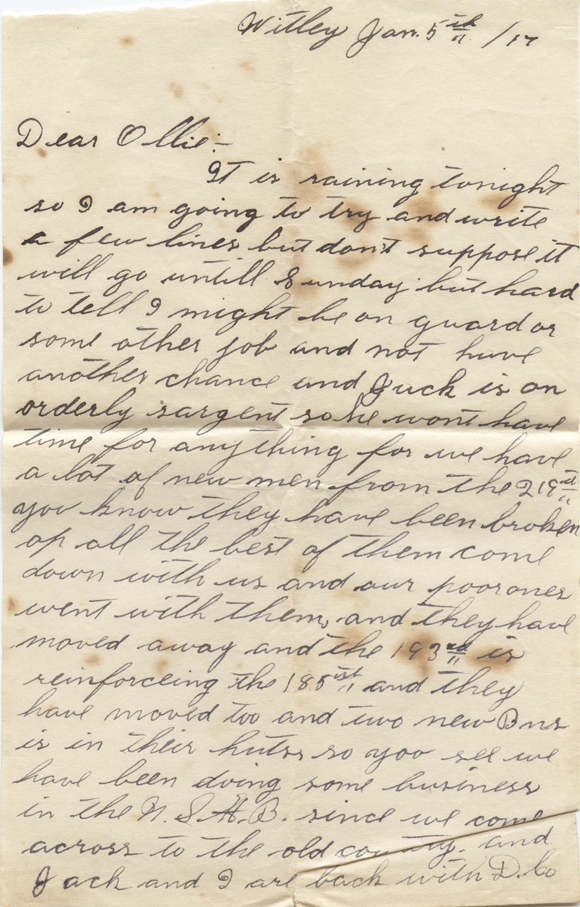 Witley Jan. 5th /17
Dear Ollie:-
It is raining tonight
so I am going to try and write
a few lines but don't suppose it
will go untill Sunday but hard
to tell I might be on guard or
some other job and not have
another chance and Jack is on
orderly sargent so he wont have
time for anything for we have
a lot of new men from the 219st
you know they have been broken
op all the best of them come
down with us and our poor ones
went with them, and they have
moved away and the 193rd is
reinforceing the 185st and they
have moved too and two new Bns
is in their huts so you see we
have been doing some business
in the N.S.H.B. since we come
across to the old country. and
Jack and I are back with D. Co